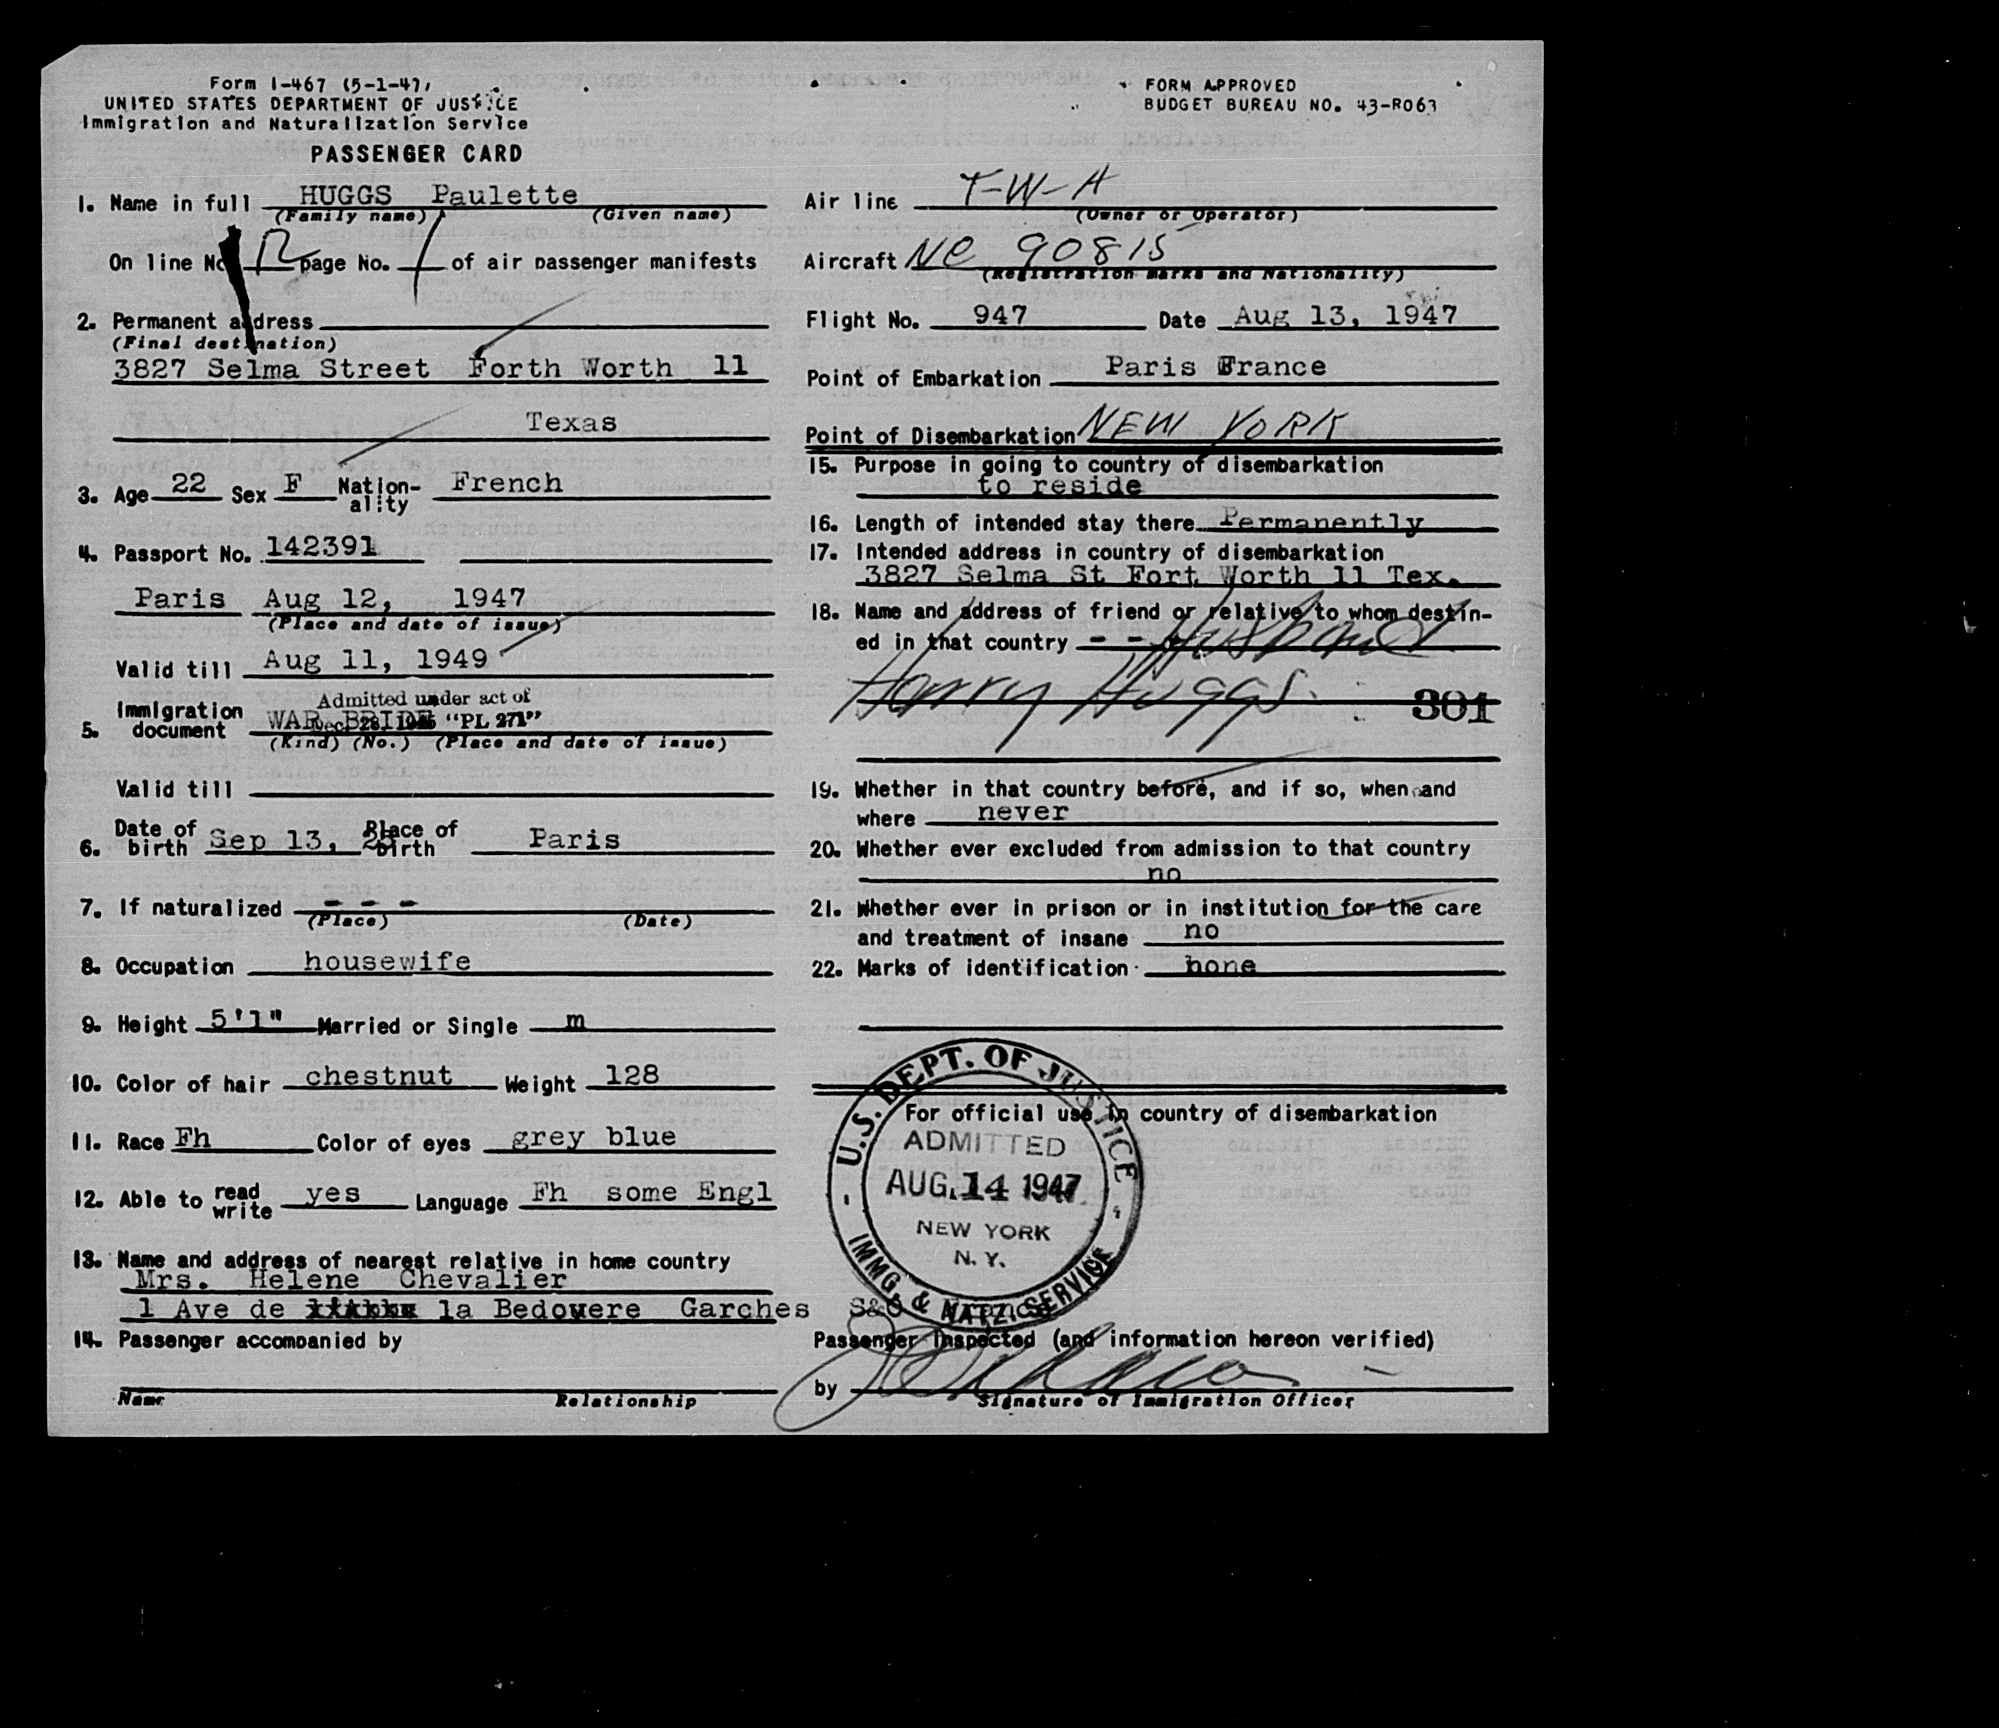 Form I-467 (5-1-47)
UNITED STATES DEPARTMENT OF JUSTICE
Immigration and Naturalization Service
PASSENGER CARD
FORM APPROVED
BUDGET BUREAU NO. 43-R063
1. Name in full HUGGS Paulette
(Family name) (Given name)
On line No. 12 page No. 1 of air passenger manifests
2. Permanent address
(Final destination)
3827 Selma Street Forth Worth 11
Texas
3. Age 22 Sex F Nation-ality French
4. Passport No. 142391
Paris Aug 12, 1947
(Place and date of issue)
Valid till Aug 11, 1949
Admitted under act of
5. Immigration document WAR BRIDE Dec 28, 1945 "PL 271"
(Kind) (No.) (Place and date of issue)
Valid till
6. Date of birth Sep 13, 25 Place of birth Paris
7. If naturalized - - -
(Place) (Date)
8. Occupation housewife
9. Height 5'1" Married or Single m
10. Color of hair chestnut Weight 128
11. Race Fh Color of eyes grey blue
12. Able to read write yes Language Fh some Engl
13. Name and address of nearest relative in home country
Mrs. Helene Chevalier
1 Ave de la Bedoyere Garches S&O France
14. Passenger accompanied by
Name Relationship
Air line T-W-A
(Owner or Operator)
Aircraft NC 90815
(Registration marks and Nationality)
Flight No. 947 Date Aug 13, 1947
Point of Embarkation Paris France
Point of Disembarkation NEW YORK
15. Purpose in going to country of disembarkation
to reside
16. Length of intended stay there Permanently
17. Intended address in country of disembarkation
3827 Selma St Fort Worth 11 Tex.
18. Name and address of friend or relative to whom destin-
ed in that country - - - Husband
Harry Huggs. 301
19. Whether in that country before, and if so, when and
where never
20. Whether ever excluded from admission to that country
no
21. Whether ever in prison or in institution for the care
and treatment of insane no
22. Marks of identification none
For official use in country of disembarkation
U.S. DEPT. OF JUSTICE
ADMITTED
AUG. 14 1947
NEW YORK
N. Y.
IMMG. & NATZ. SERVICE
Passenger inspected (and information hereon verified)
by
Signature of Immigration Officer